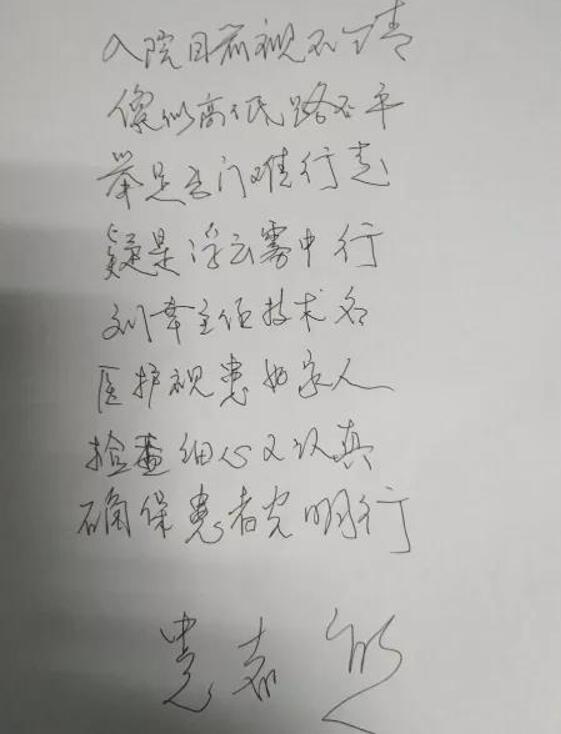 入院目前视不清
傻似高低路不平
举足出门难行走
疑是浮云雾中行
刘幸主任技术名
医护视患如家人
检查细心又认真
确保患者光明行
患者